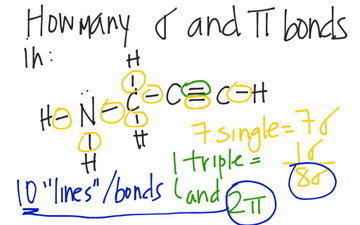 How many σ and π bonds
in:
H
H-N̈-C-C≡C-H
H
H
7 single = 7σ
1 triple = 1σ
and 2π
8σ
10 "lines"/bonds